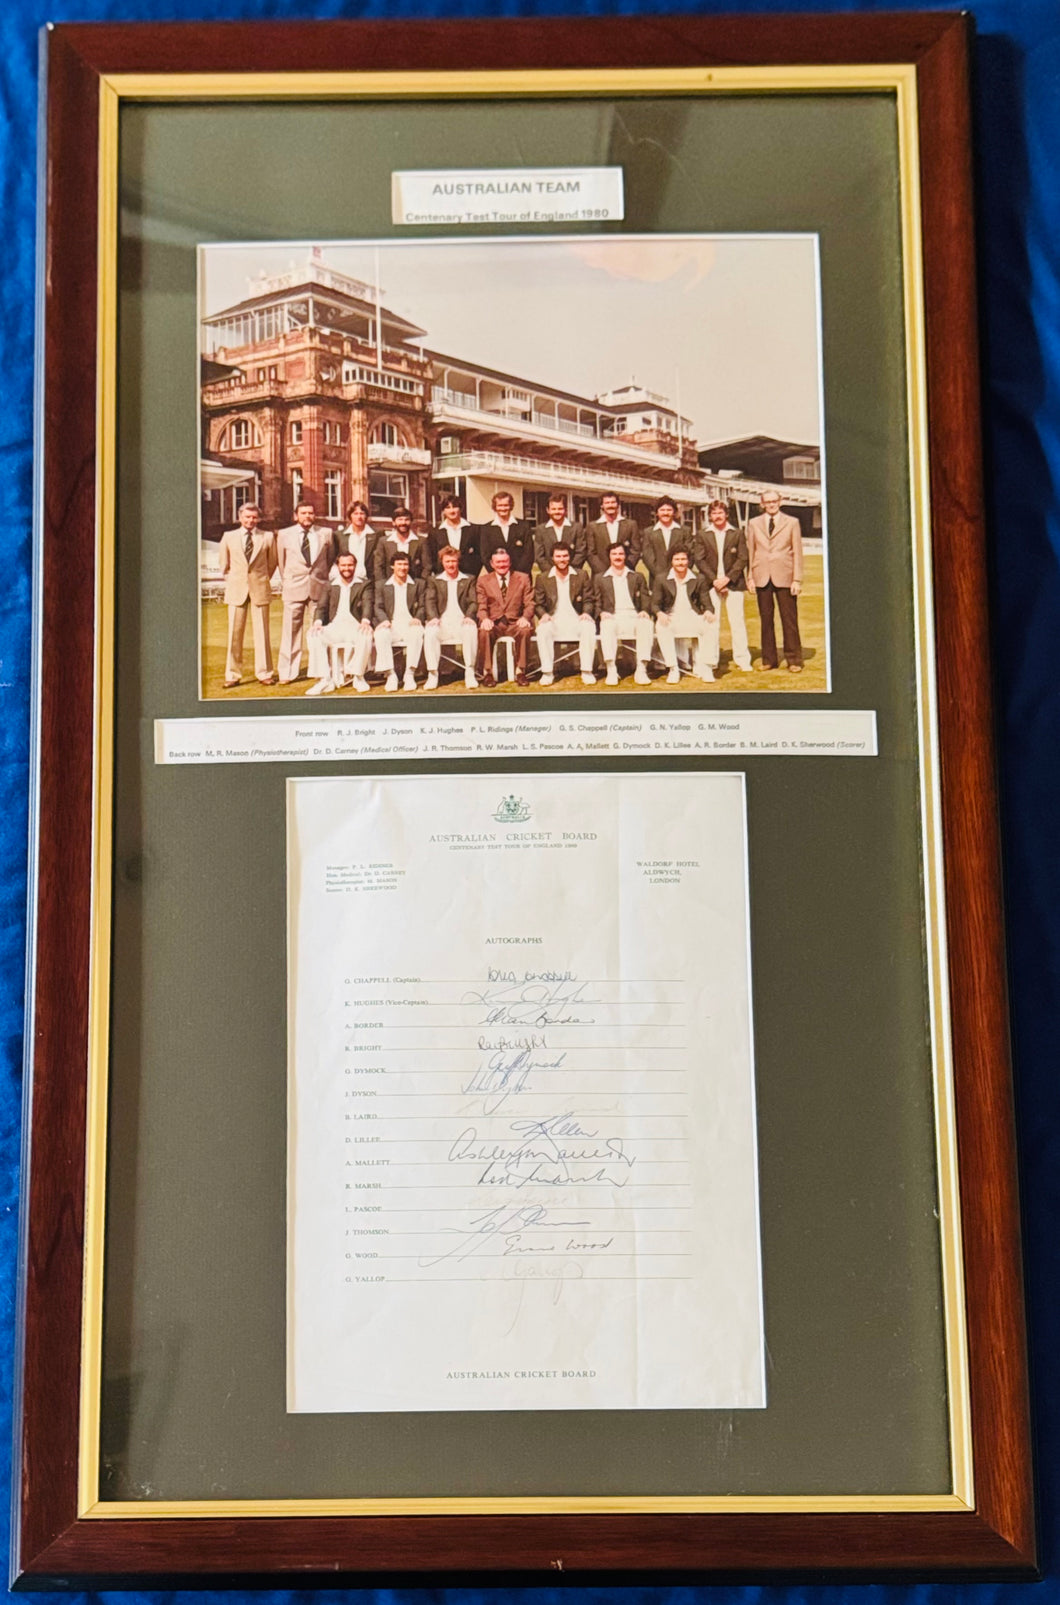 AUSTRALIAN TEAM
Centenary Test Tour of England 1980
Front row R. J. Bright J. Dyson K. J. Hughes P. L. Ridings (Manager) G. S. Chappell (Captain) G. N. Yallop G. M. Wood
Back row M. R. Mason (Physiotherapist) Dr. D. Carney (Medical Officer) J. R. Thomson R. W. Marsh L. S. Pascoe A. A. Mallett G. Dymock D. K. Lillee A. R. Border B. M. Laird D. K. Sherwood (Scorer)
AUSTRALIA
AUSTRALIAN CRICKET BOARD
CENTENARY TEST TOUR OF ENGLAND 1980
Manager: P. L. RIDINGS
Hon. Medical: Dr. D. CARNEY
Physiotherapist: M. MASON
Scorer: D. K. SHERWOOD
WALDORF HOTEL
ALDWYCH,
LONDON
AUTOGRAPHS
G. CHAPPELL (Captain) Greg Chappell
K. HUGHES (Vice-Captain) Kim Hughes
A. BORDER Allan Border
R. BRIGHT Ray Bright
G. DYMOCK Geoff Dymock
J. DYSON John Dyson
B. LAIRD
D. LILLEE DK Lillee
A. MALLETT Ashley Mallett
R. MARSH Rod Marsh
L. PASCOE
J. THOMSON
G. WOOD Graeme Wood
G. YALLOP
AUSTRALIAN CRICKET BOARD